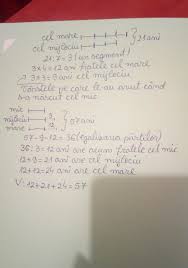 cel mare
cel mijlociu } 21 ani
21:7=3 (un segment)
3×4=12 ani fratele cel mare
3×3=9 ani cel mijlociu
Vârstele pe care le au avut când
s-a născut cel mic
mic
mijlociu 9
mare 12 } 57 ani
57-9-12=36 (egalizarea părților)
36:3=12 ani are acum fratele cel mic
12+9=21 ani are cel mijlociu
12+12=24 ani are cel mare
V: 12+21+24=57